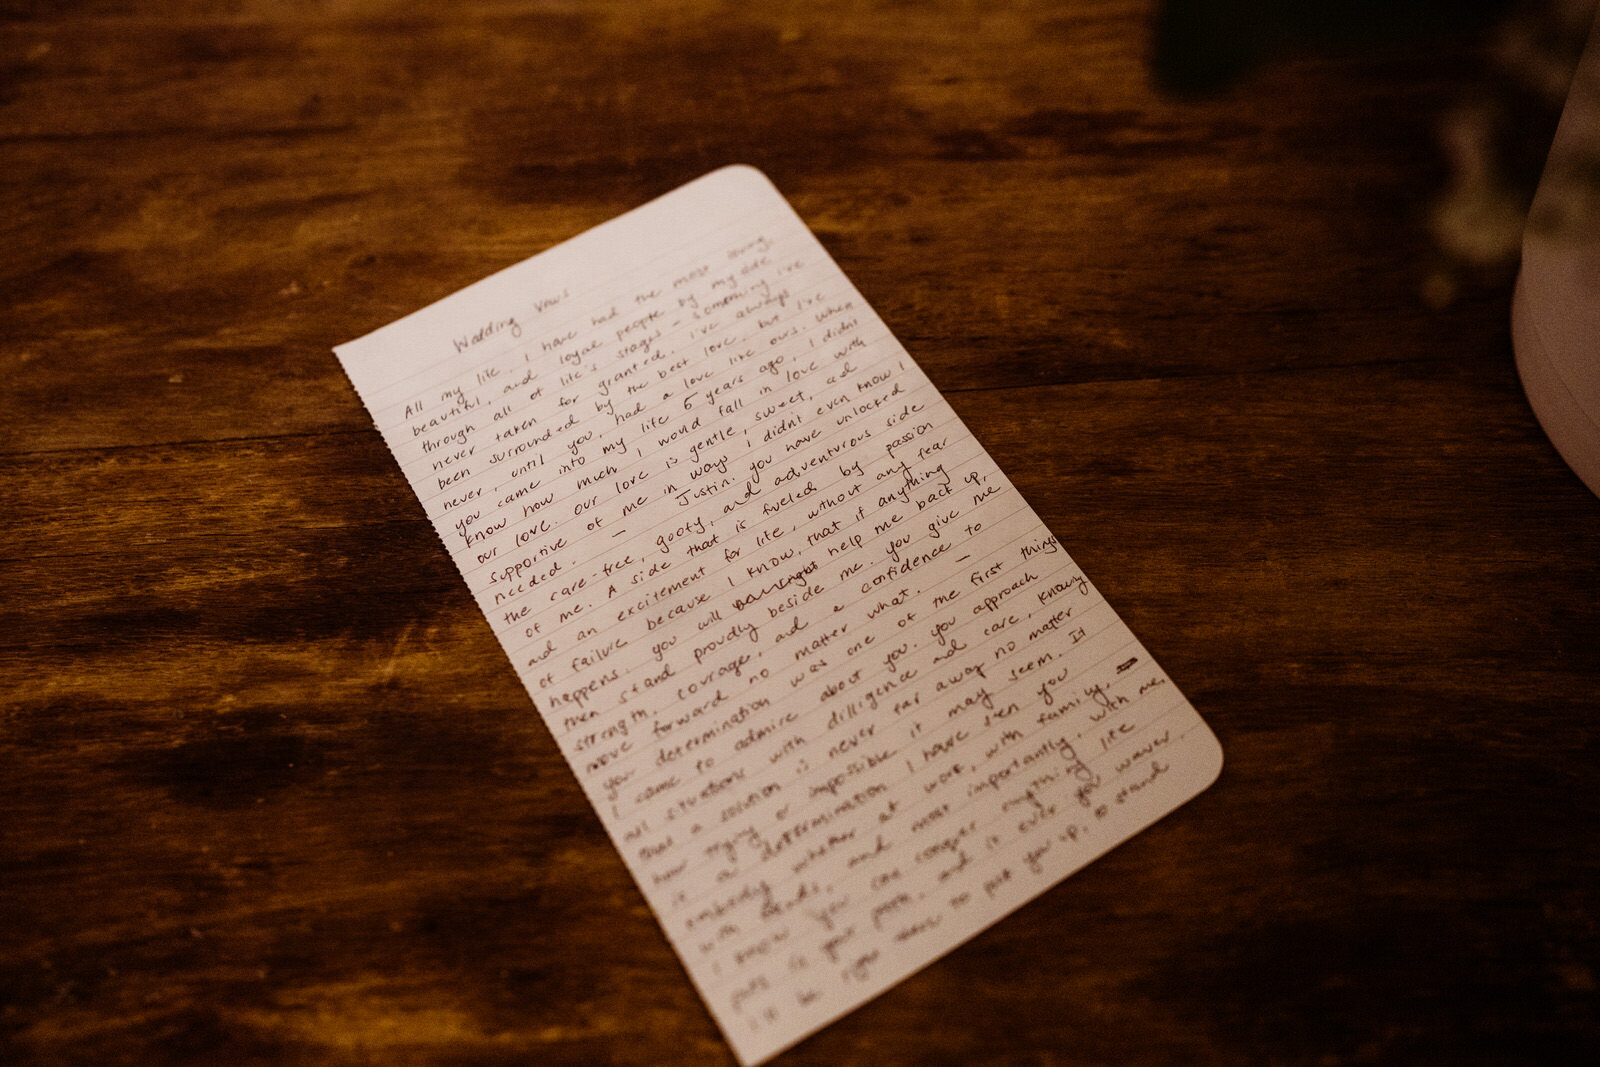 Wedding Vows
All my life, I have had the most loving,
beautiful, and loyal people by my side
through all of life's stages - something I've
never taken for granted. I've always
been surrounded by the best love, but I've
never, until you, had a love like ours. When
you came into my life 5 years ago, I didnt
know how much I would fall in love with
our love. Our love is gentle, sweet, and
supportive of me in ways I didnt even know I
needed. — Justin. you have unlocked
the care-free, goofy, and adventurous side
of me. A side that is fueled by passion
and an excitement for life, without any fear
of failure because I know, that if anything
happens, you will help me back up,
then stand proudly beside me. you give me
strength, courage, and a confidence to
move forward no matter what. —
your determination was one of the first things
I came to admire about you. you approach
all situations with dilligence and care, knowing
that a solution is never far away no matter
how trying or impossible it may seem. It
is a determination I have seen you
embody whether at work, with family,
with friends, and most importantly, with me.
I know you can conquer anything life
puts in your path, and if ever you waver,
I'll be right there to pick you up, to stand